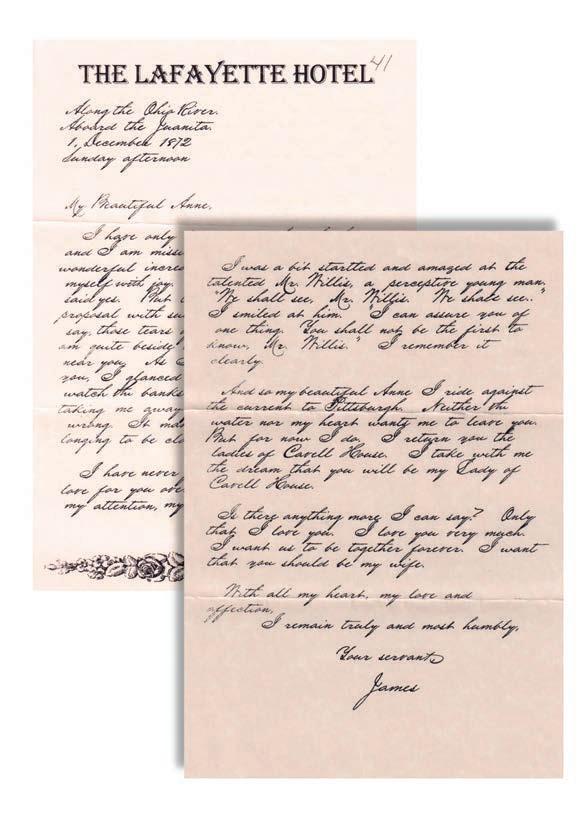 THE LAFAYETTE HOTEL
41
Along the Ohio River.
Aboard the Juanita.
1, December 1872
Sunday afternoon
My Beautiful Anne,
I have only
and I am miss
wonderful incre
myself with joy.
said yes. But
proposal with su
say, those tears
am quite beside
near you. As
you, I glanced
watch the banks
taking me away
wrong. It ma
longing to be clo
I have never
love for you ove
my attention, my
I was a bit startled and amazed at the
talented Mr. Willis, a perceptive young man.
"We shall see, Mr. Willis. We shall see.."
I smiled at him. "I can assure you of
one thing. You shall not be the first to
know, Mr. Willis." I remember it
clearly.
And so my beautiful Anne I ride against
the current to Pittsburgh. Neither the
water nor my heart wants me to leave you.
But for now I do. I return you the
ladies of Cavell House. I take with me
the dream that you will be my Lady of
Cavell House.
Is there anything more I can say? Only
that I love you. I love you very much.
I want us to be together forever. I want
that you should be my wife.
With all my heart, my love and
affection,
I remain truly and most humbly,
Your servant,
James